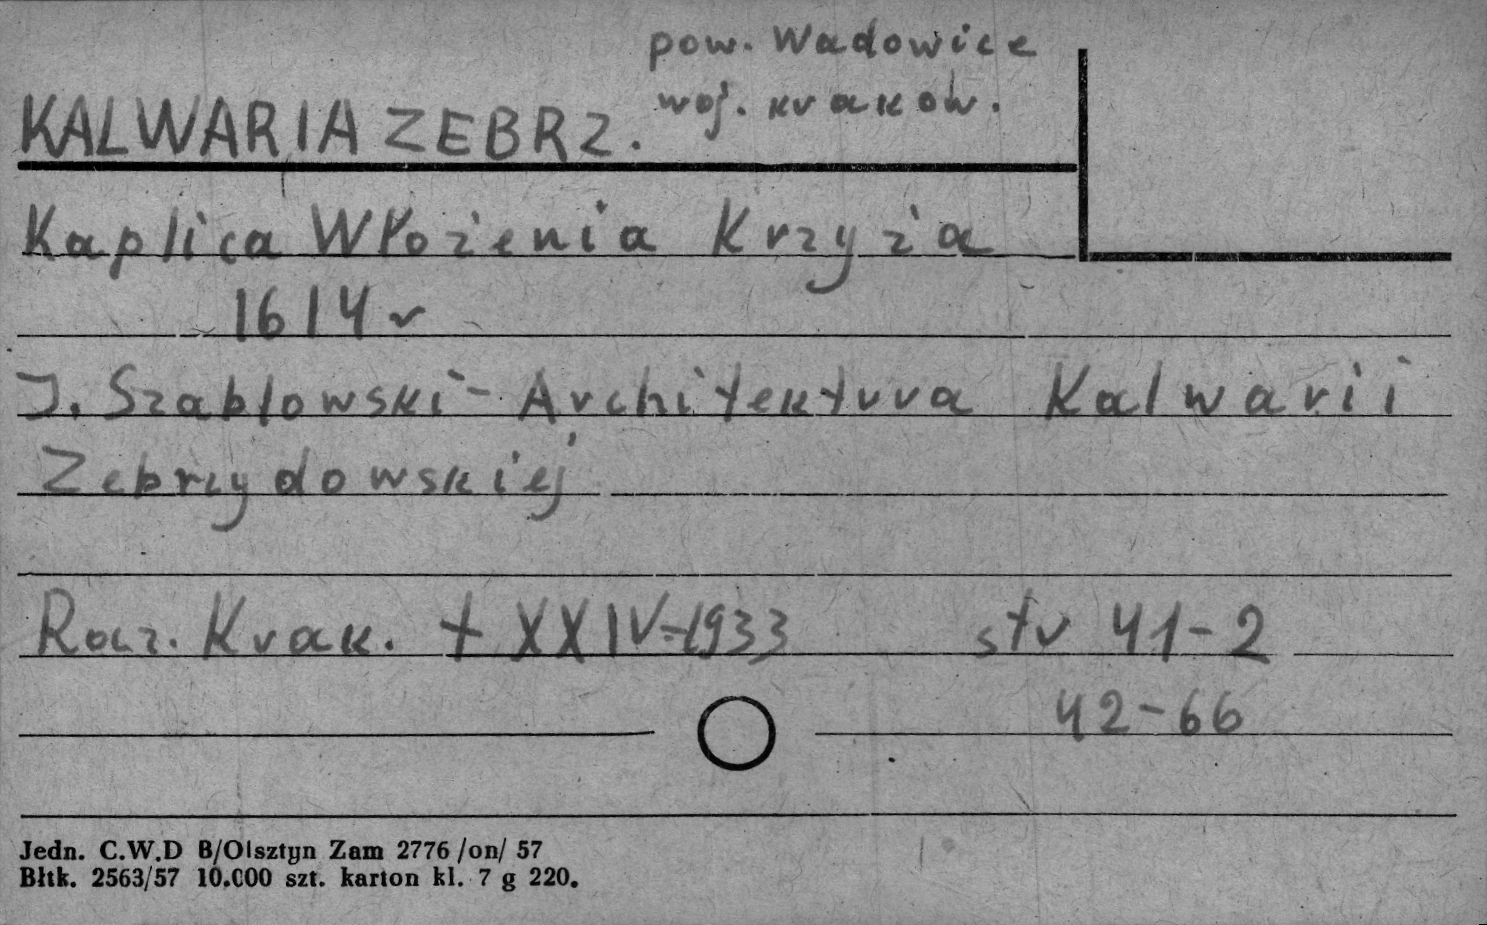 pow. Wadowice
woj. krakow.
KALWARIA ZEBRZ.
Kaplica Włożenia Krzyża
1614 r
J. Szablowski - Architektura Kalwarii
Zebrzydowskiej
Rocz. Krak. t XXIV-1933 str 41-2
42-66
Jedn. C.W.D B/Olsztyn Zam 2776 /on/ 57
Błtk. 2563/57 10.000 szt. karton kl. 7 g 220.